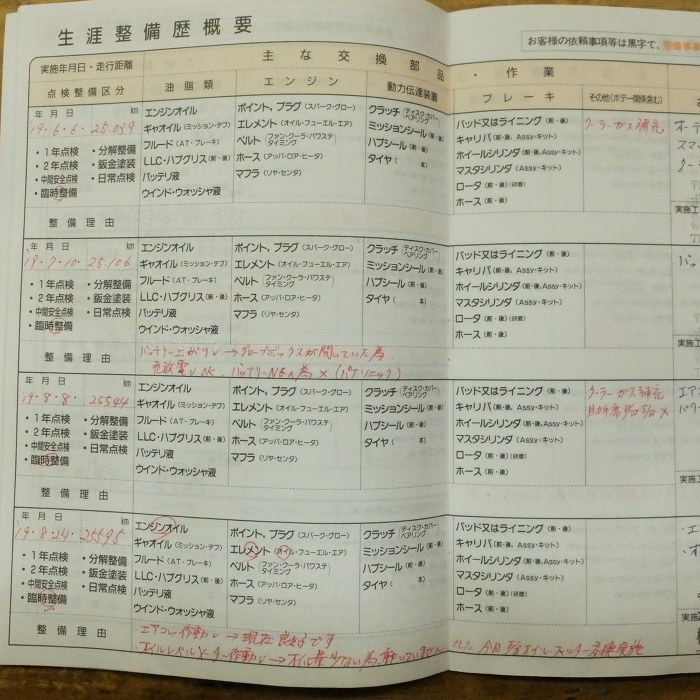 生涯整備歴概要
お客様の依頼事項等は黒字で、整備事
主な交換部品・作業
実施年月日・走行距離
点検整備区分 油脂類 エンジン 動力伝達装置 ブレーキ その他(ボデー関係含む)
年 月 日 km
19・6・6・25.039
・1年点検 ・分解整備
・2年点検 ・鈑金塗装
・中間安全点検 ・日常点検
・臨時整備
エンジンオイル
ギャオイル(ミッション・デフ)
フルード(AT・ブレーキ)
LLC・ハブグリス(前・後)
バッテリ液
ウインド・ウオッシャ液
ポイント, プラグ(スパーク・グロー)
エレメント(オイル・フューエル・エア)
ベルト(ファン・クーラ・パワステ タイミング)
ホース(アッパ・ロア・ヒータ)
マフラ(リヤ・センタ)
クラッチ(ディスク・カバー ベアリング)
ミッションシール(前・後)
ハブシール(前・後)
タイヤ( 本)
パッド又はライニング(前・後)
キャリパ(前・後、Assy・キット)
ホイールシリンダ(前・後、Assy・キット)
マスタシリンダ(Assy・キット)
ロータ(前・後)(研磨)
ホース(前・後)
クーラーガス補充
整備理由
実施工
年 月 日 km
19・7・10・25.106
・1年点検 ・分解整備
・2年点検 ・鈑金塗装
・中間安全点検 ・日常点検
・臨時整備
エンジンオイル
ギャオイル(ミッション・デフ)
フルード(AT・ブレーキ)
LLC・ハブグリス(前・後)
バッテリ液
ウインド・ウオッシャ液
ポイント, プラグ(スパーク・グロー)
エレメント(オイル・フューエル・エア)
ベルト(ファン・クーラ・パワステ タイミング)
ホース(アッパ・ロア・ヒータ)
マフラ(リヤ・センタ)
クラッチ(ディスク・カバー ベアリング)
ミッションシール(前・後)
ハブシール(前・後)
タイヤ( 本)
パッド又はライニング(前・後)
キャリパ(前・後、Assy・キット)
ホイールシリンダ(前・後、Assy・キット)
マスタシリンダ(Assy・キット)
ロータ(前・後)(研磨)
ホース(前・後)
整備理由
バッテリー上がり→グローブボックスが開いていた為
充放電 OK バッテリー 為 × (パナソニック)
実施工
年 月 日 km
19・8・8・25544
・1年点検 ・分解整備
・2年点検 ・鈑金塗装
・中間安全点検 ・日常点検
・臨時整備
エンジンオイル
ギャオイル(ミッション・デフ)
フルード(AT・ブレーキ)
LLC・ハブグリス(前・後)
バッテリ液
ウインド・ウオッシャ液
ポイント, プラグ(スパーク・グロー)
エレメント(オイル・フューエル・エア)
ベルト(ファン・クーラ・パワステ タイミング)
ホース(アッパ・ロア・ヒータ)
マフラ(リヤ・センタ)
クラッチ(ディスク・カバー ベアリング)
ミッションシール(前・後)
ハブシール(前・後)
タイヤ( 本)
パッド又はライニング(前・後)
キャリパ(前・後、Assy・キット)
ホイールシリンダ(前・後、Assy・キット)
マスタシリンダ(Assy・キット)
ロータ(前・後)(研磨)
ホース(前・後)
クーラーガス補充
整備理由
実施工
年 月 日 km
19・8・24・25595
・1年点検 ・分解整備
・2年点検 ・鈑金塗装
・中間安全点検 ・日常点検
・臨時整備
エンジンオイル
ギャオイル(ミッション・デフ)
フルード(AT・ブレーキ)
LLC・ハブグリス(前・後)
バッテリ液
ウインド・ウオッシャ液
ポイント, プラグ(スパーク・グロー)
エレメント(オイル・フューエル・エア)
ベルト(ファン・クーラ・パワステ タイミング)
ホース(アッパ・ロア・ヒータ)
マフラ(リヤ・センタ)
クラッチ(ディスク・カバー ベアリング)
ミッションシール(前・後)
ハブシール(前・後)
タイヤ( 本)
パッド又はライニング(前・後)
キャリパ(前・後、Assy・キット)
ホイールシリンダ(前・後、Assy・キット)
マスタシリンダ(Assy・キット)
ロータ(前・後)(研磨)
ホース(前・後)
整備理由
エアコン作動→現在良好です
・オイルレベルメーター作動→オイル量少ない為、動いていません でした 今月 オイル フィルター交換実施
実施工